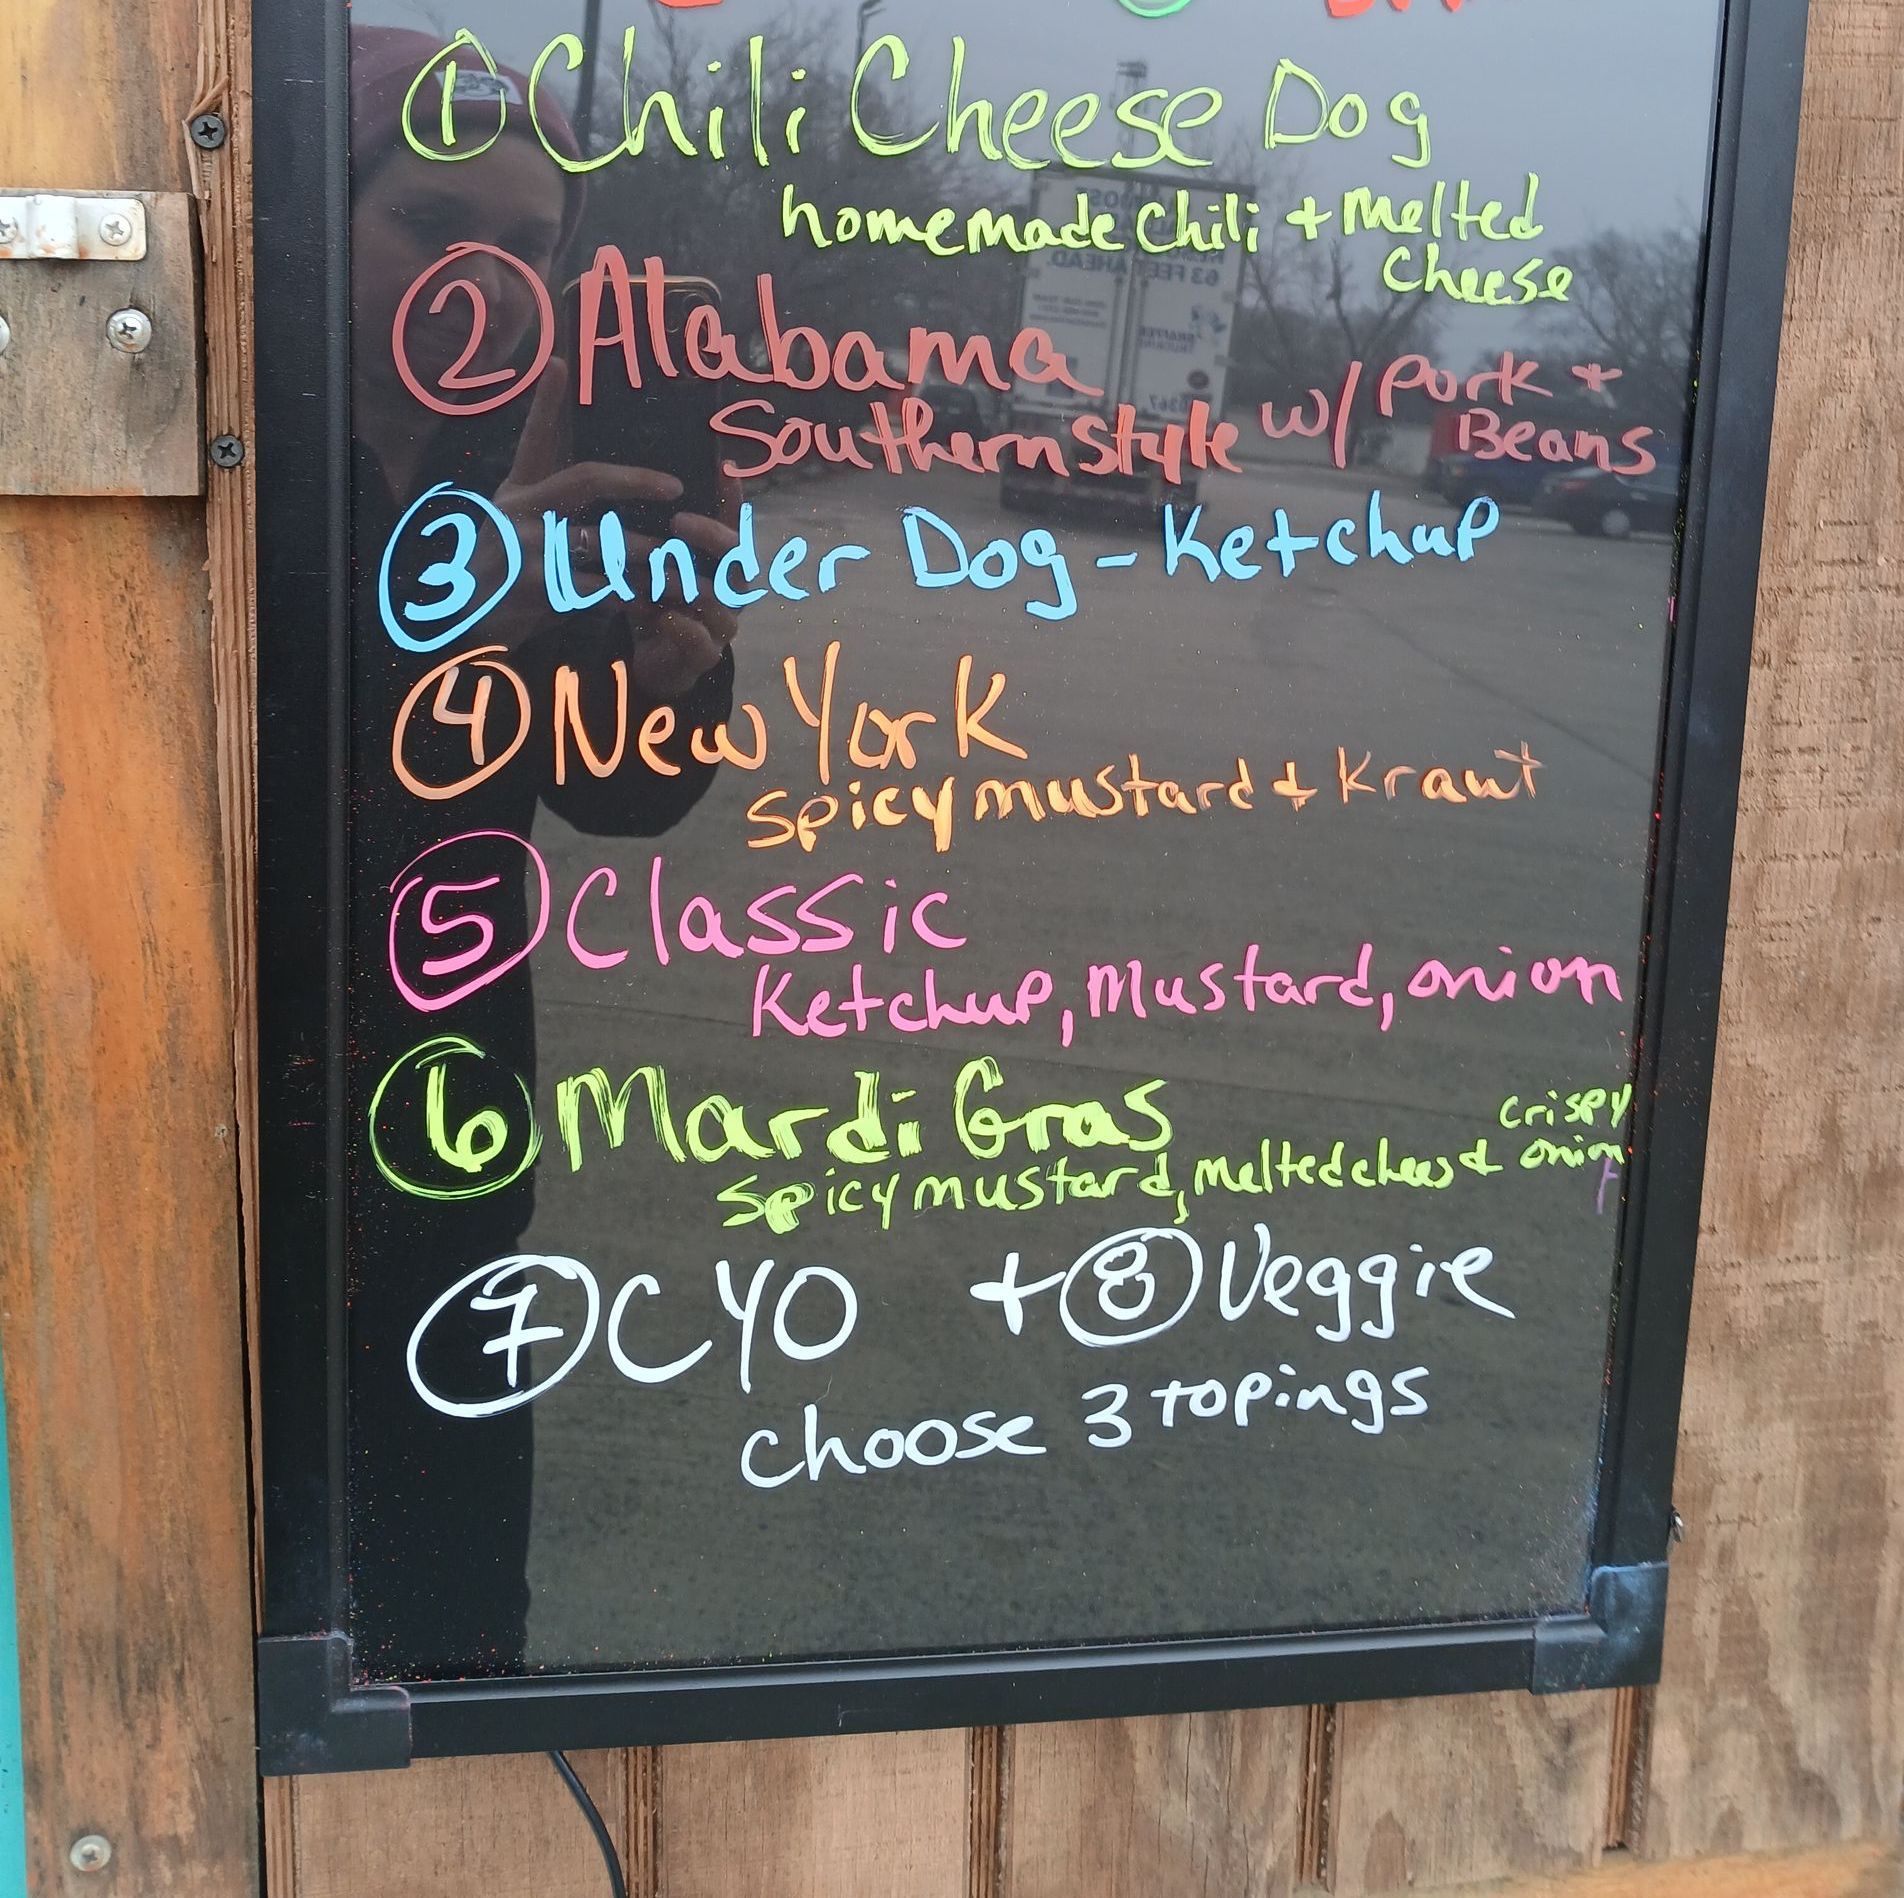 1 Chili Cheese Dog
homemade Chili + Melted
Cheese
2 Alabama
Southern Style w/ Pork +
Beans
3 Under Dog - Ketchup
4 New York
Spicy mustard + Kraut
5 Classic
Ketchup, Mustard, onion
6 Mardi Gras
Spicy mustard, melted chees + crispy
onion
7 CYO + 8 Veggie
choose 3 topings
63 FEET AHEAD